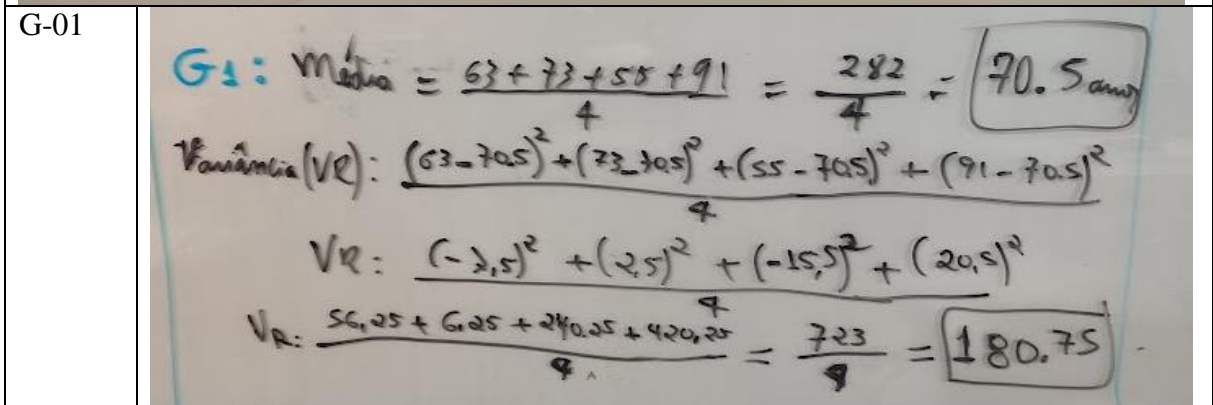 G-01
G1: Média = 63 + 73 + 55 + 91 / 4 = 282 / 4 = 70.5 anos
Variância (VR): (63 - 70.5)² + (73 - 70.5)² + (55 - 70.5)² + (91 - 70.5)² / 4
VR: (-7,5)² + (2,5)² + (-15,5)² + (20,5)² / 4
VR: 56,25 + 6,25 + 240.25 + 420,25 / 4 = 723 / 4 = 180.75